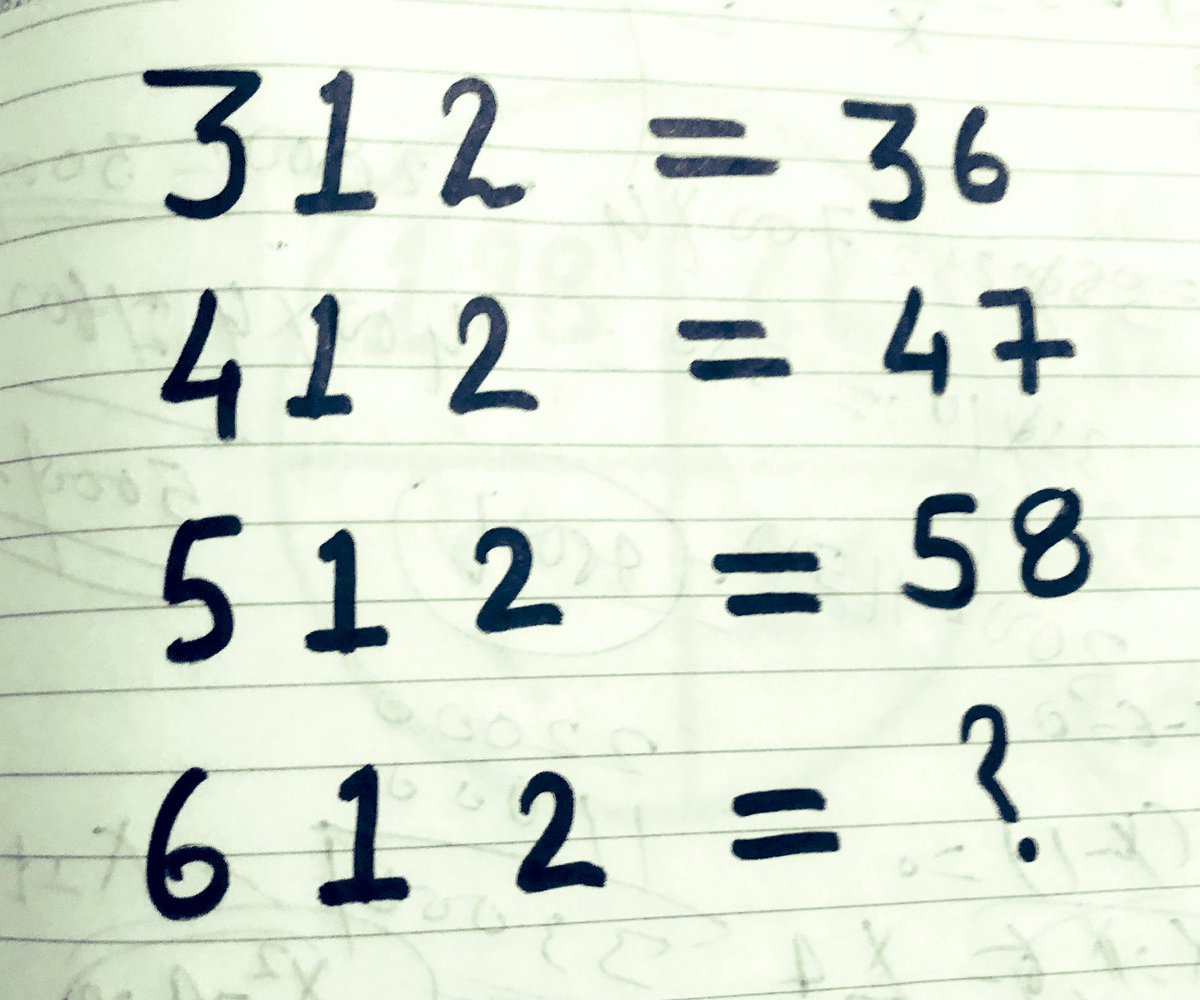 3 1 2 = 36
4 1 2 = 47
5 1 2 = 58
6 1 2 = ?